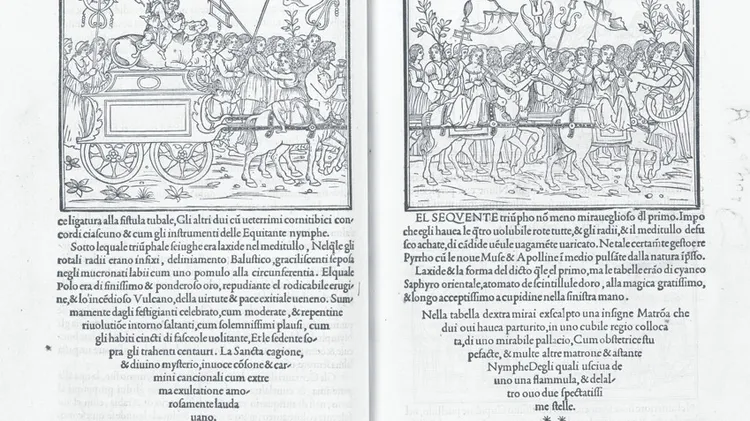 ce ligatura alla fistula tubale, Gli altri dui cũ ueterrimi cornitibici con-
cordi ciascuno & cum gli instrumenti delle Equitante nymphe.
Sotto lequale triũphale seiughe era laxide nel meditullo, Nelq̃le gli
rotali radii erano infixi, deliniamento Balustico, graciliscenti seposa
negli mucronati labii cum uno pomulo alla circunferentia. Elquale
Polo era di finissimo & ponderoso oro, repudiante el rodicabile erugi-
ne, & lo'incẽdioso Vulcano, della uirtute & pace exitiale ueneno. Sum-
mamente dagli festigianti celebrato, cum moderate, & repentine
riuolutiõe intorno saltanti, cum solemnissimi plausi, cum
gli habiti cincti di fasceole uolitante, Et le sedente so-
pra gli trahenti centauri. La Sancta cagione,
& diuino mysterio, inuoce cõsone & car-
mini cancionali cum extre
ma exultatione amo-
rosamente lauda
uano.
EL SEQVENTE triũpho nõ meno miraueglioso dl primo. Impo
che egli hauea le q̃tro uolubile rote tutte, & gli radii, & il meditullo defu-
sco achate, di cãdide uẽule uagamẽte uaricato. Netale certamẽte gestoe re
Pyrrho cũ le noue Muse & Apolline ĩ medio pulsãte dalla natura ĩpsso.
Laxide & la forma del dicto q̃le el primo, ma le tabelle erão di cyaneo
Saphyro orientale, atomato de scintillule doro, alla magica gratissimo,
& longo acceptissimo a cupidine nella sinistra mano.
Nella tabella dextra mirai exscalpto una insigne Matrõa che
dui oui hauea parturito, in uno cubile regio colloca
ta, di uno mirabile pallacio, Cum obstetrice stu
pefacte, & multe altre matrone & astante
Nymphe Degli quali usciua de
uno una flammula, & delal-
tro ouo due spectatissi
me stelle.
* *